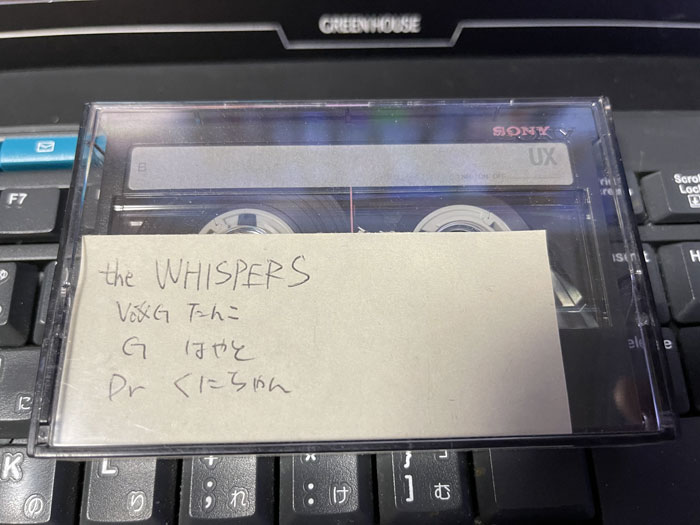 GREEN HOUSE
SONY
B
UX
F7
the WHISPERS
Vo&G たんこ
G はやと
Dr くにちゃん
Scro
Lock
H
K の
L り
+ ; れ
* : け
} 」 ] む
に